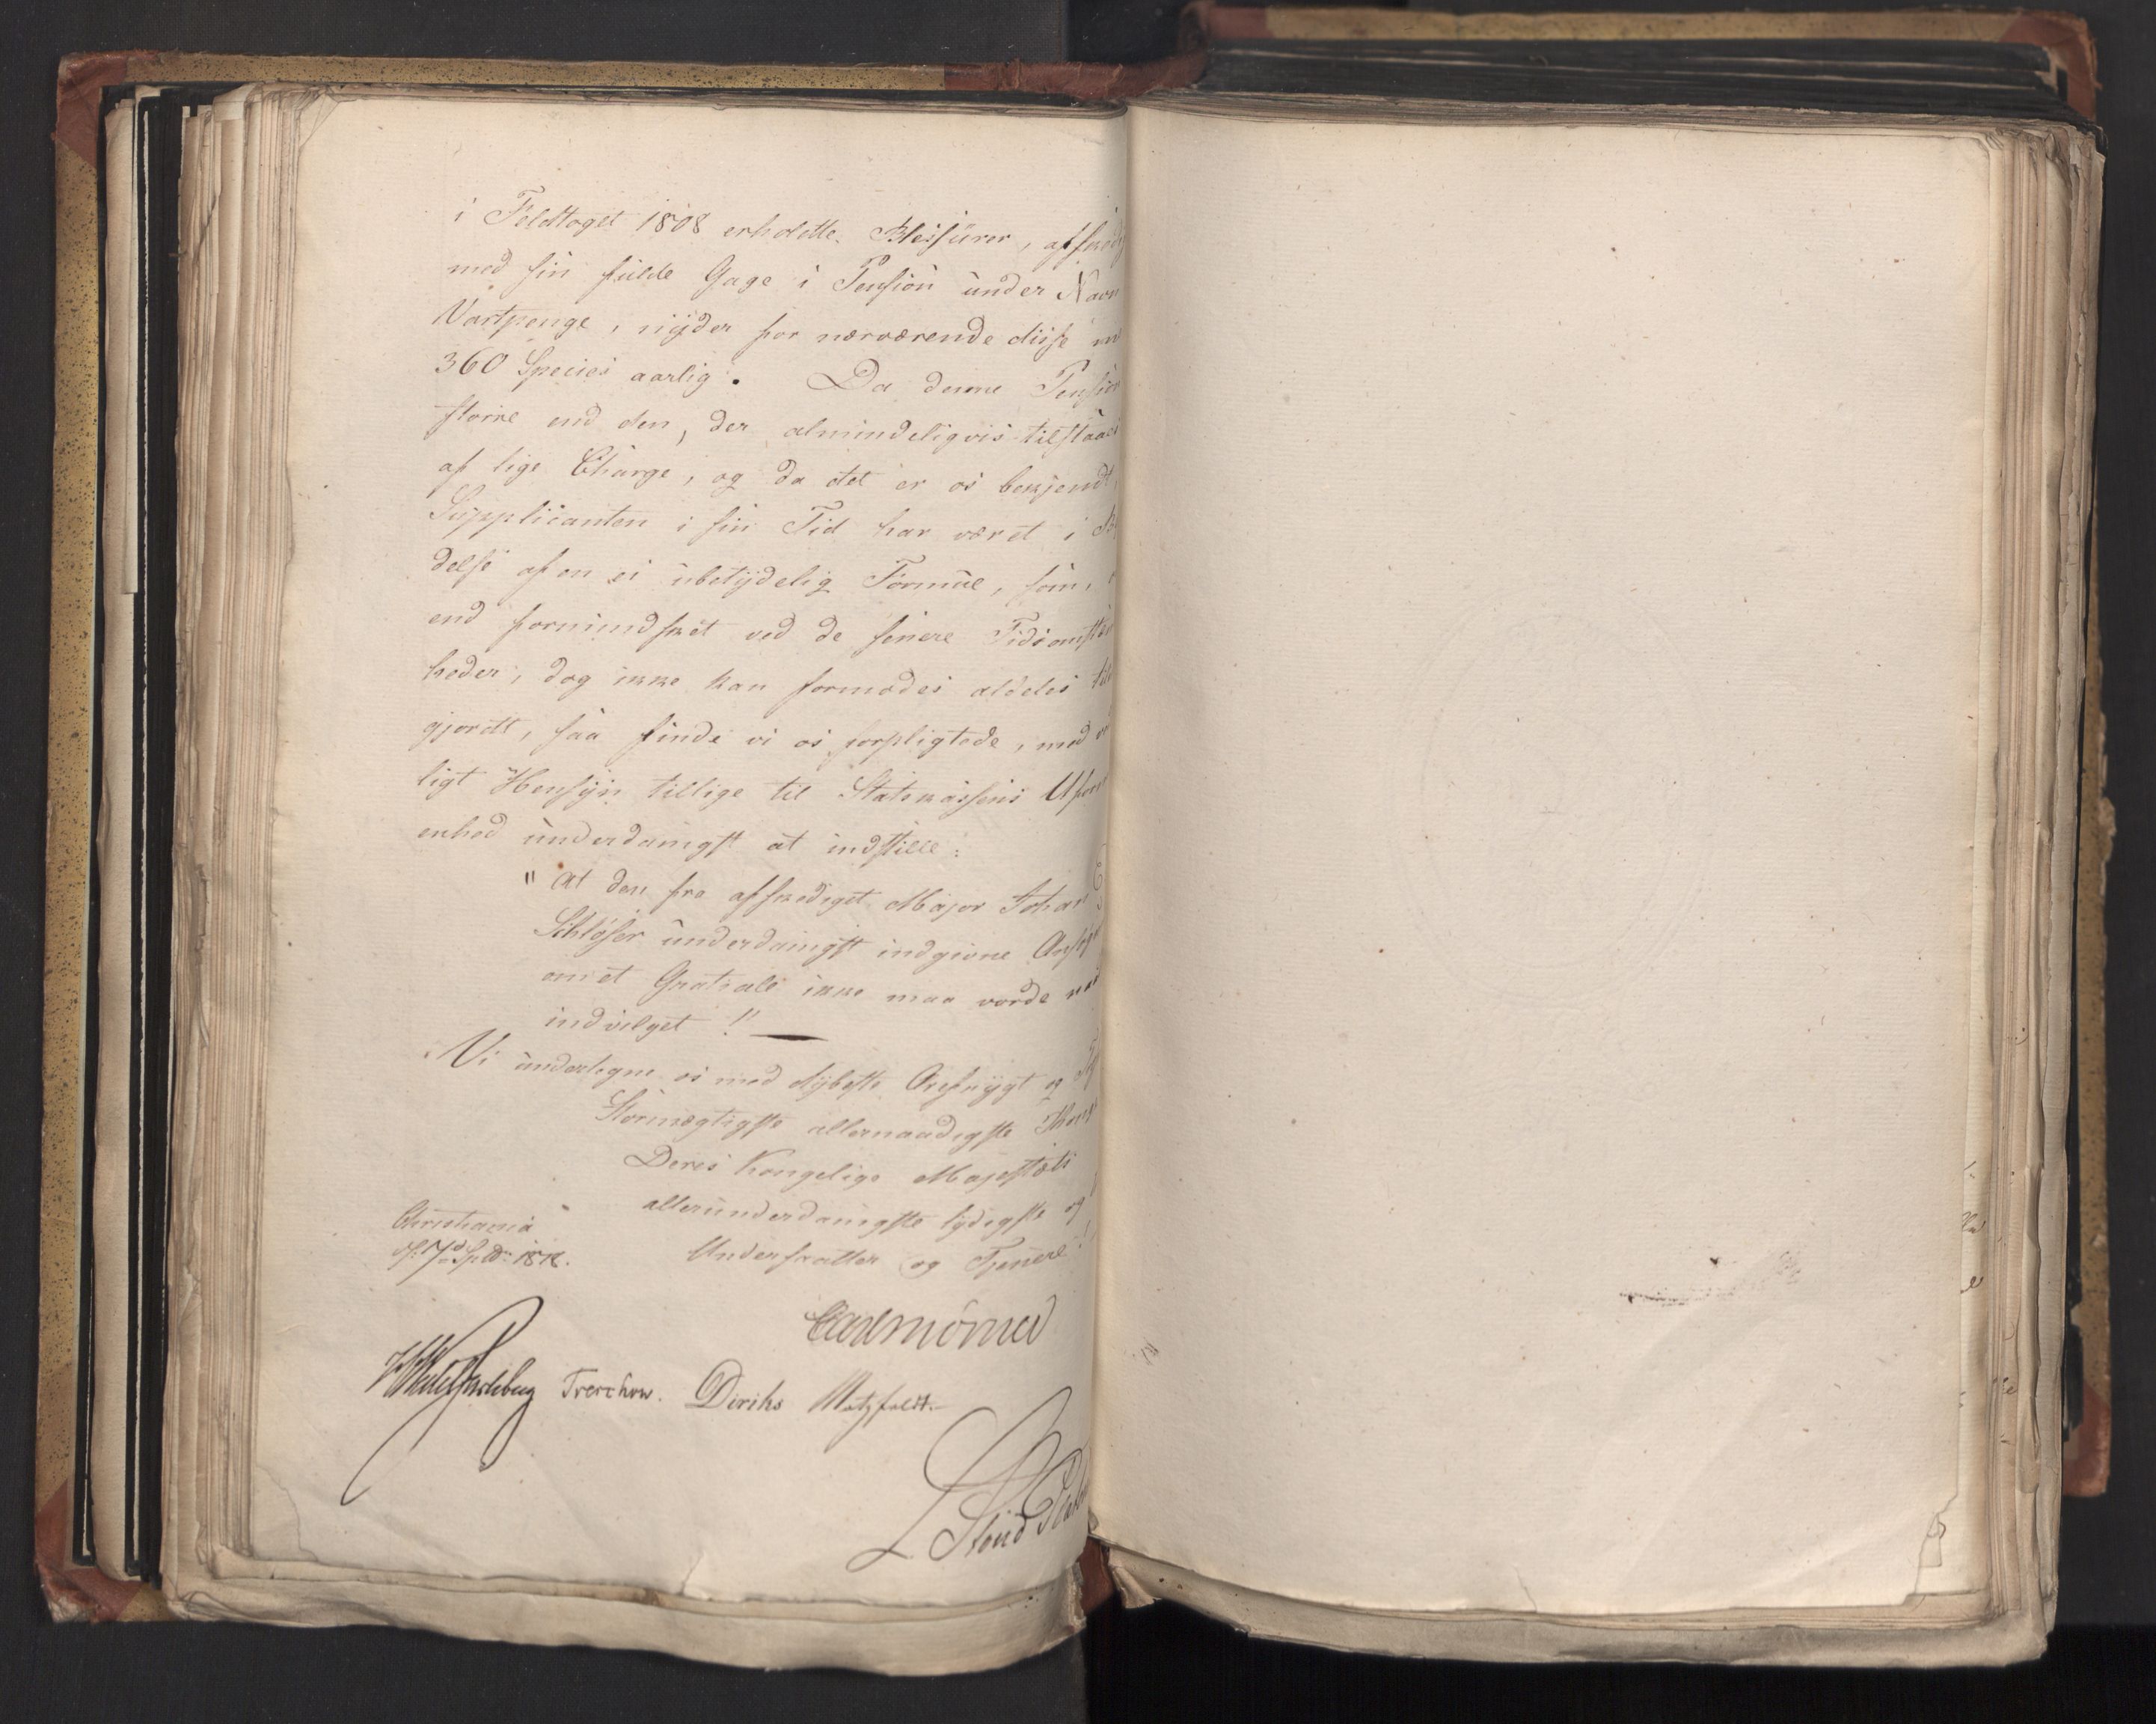 i Feldttoget 1808 erholdte Blessürer, afskedig
med sin fulde Gage i Pension under Navn
Vartpenge, nyder for nærværende disse m
360 Species aarlig. Da denne Pension
større end den, der almindeligvis tilstaaes
af lige Charge, og da det er os bekjendt,
Supplicanten i sin Tid har været i Be
delse af en ei ubetydelig Formue, som,
end formindsket ved de senere Tidsomstæn
heder, dog ikke kan formodes aldeles til
gjordt, saa finde vi os forpligtede, med
ligt Hensyn tillige til Statskassens Ufor
enhed underdanigst at indstille:
" At den fra afskediget Major Johan
Schløser underdanigst indgivne Ansøgn
om et Gratiale ikke maa vorde
indvilget !"
Vi undertegne os med dybeste Ærefrygt og
Stormægtigste allernaadigste Kong
Deres Kongelige Majestæts
allerunderdanigste lydigste og
Christiania
d: 17d Septbr: 1816.
Undersaatter og Tjenere!
Carl Mörner
Wedel Jarlsberg Treschow. Diriks Motzfeldt.